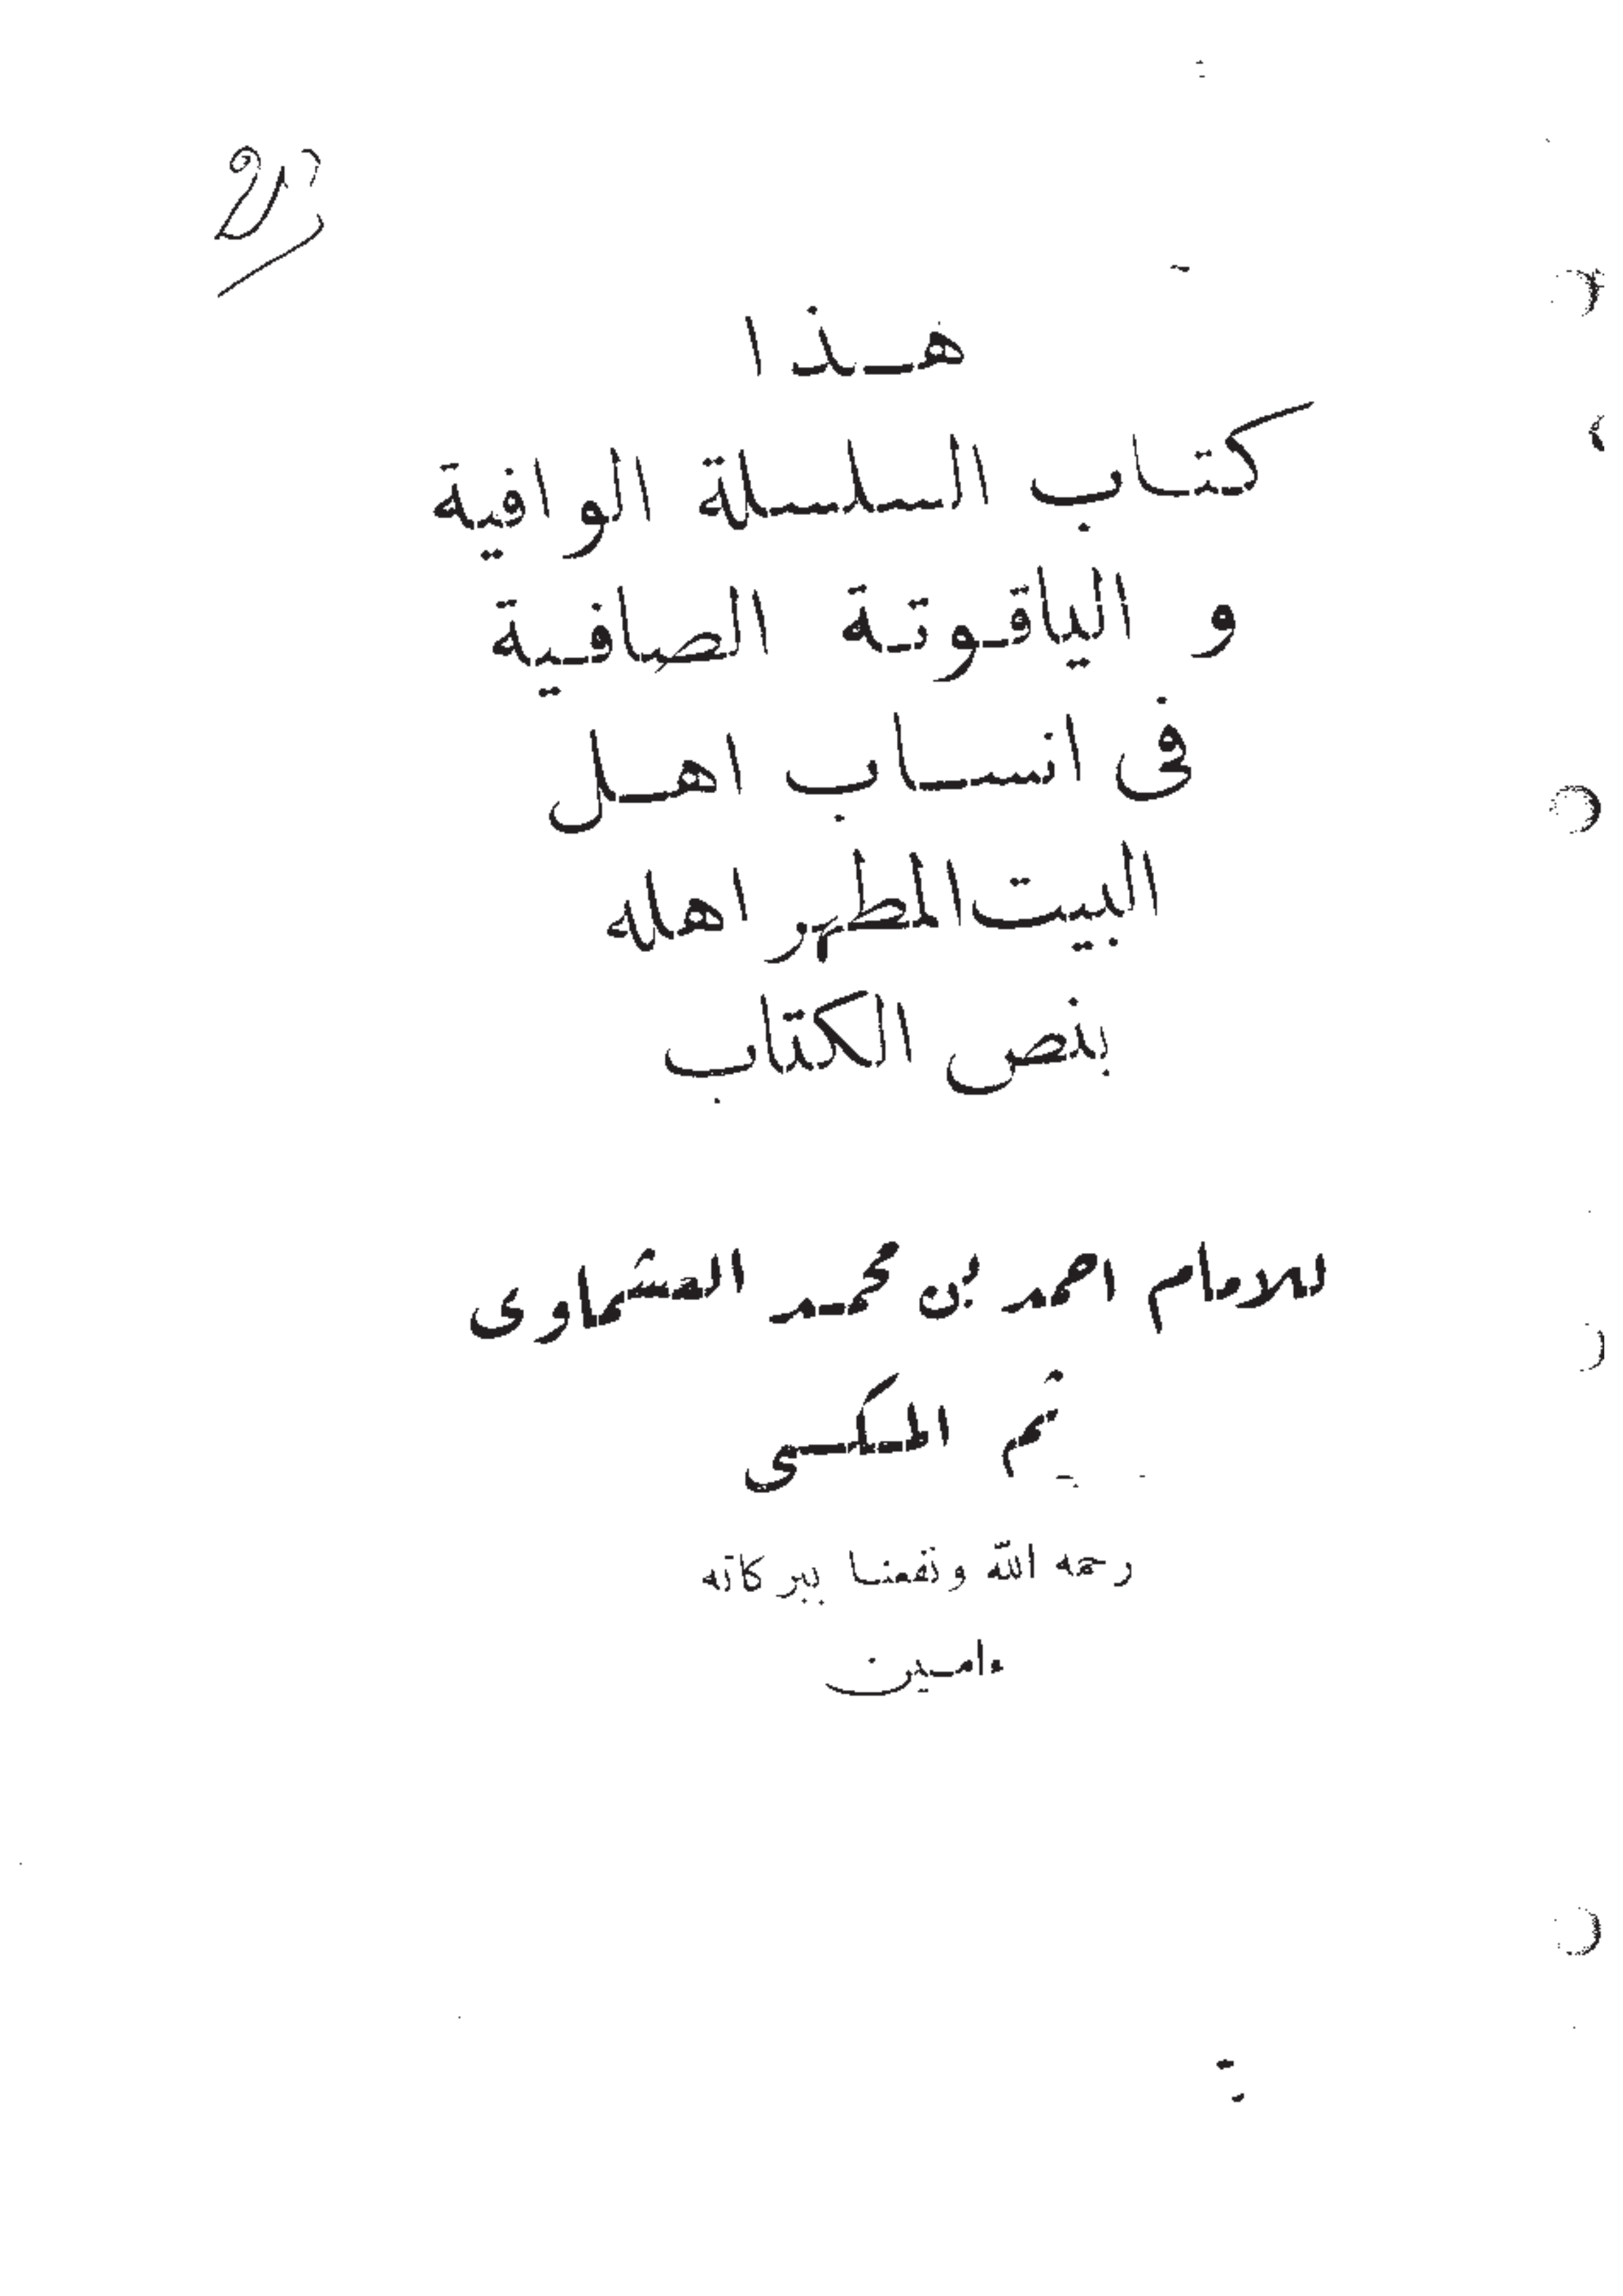 هـذا
كتاب السلسلة الوافية
و الياقوتة الصافية
فى انساب اهل
البيت المطهر اهله
بنص الكتاب
للامام احمد بن محمد العشماوى
ثم المكى
رحمه الله ونفعنا ببركاته
ءامين